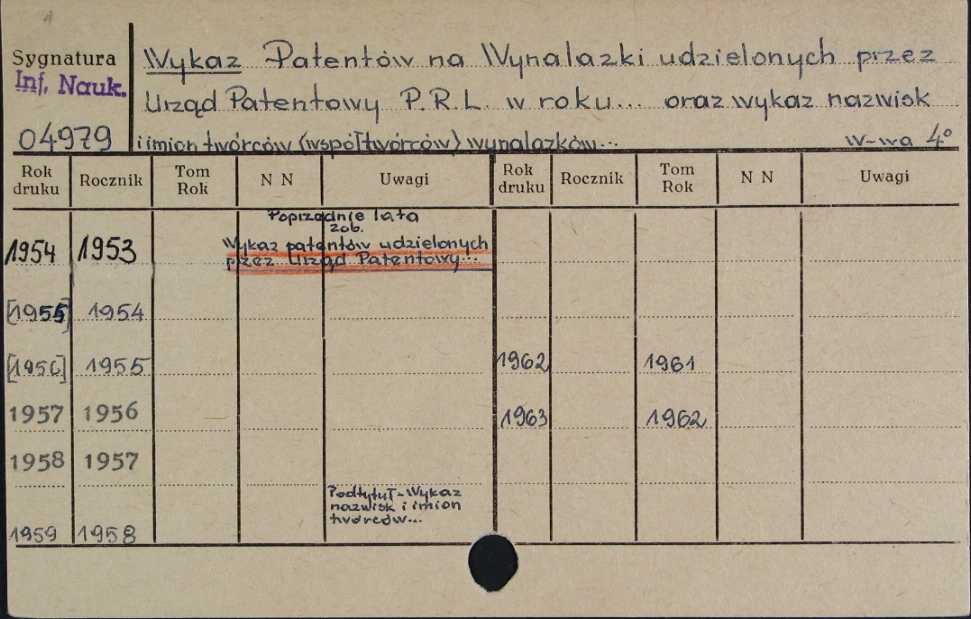 Sygnatura
Inf. Nauk.
04979
Wykaz Patentów na Wynalazki udzielonych przez
Urząd Patentowy P.R.L. w roku... oraz wykaz nazwisk
i imion twórców (współtwórców) wynalazków...
W-wa 4°
Rok druku Rocznik Tom Rok N N Uwagi Rok druku Rocznik Tom Rok N N Uwagi
Poprzednie lata
zob.
1954 1953 Wykaz patentów udzielonych
przez Urząd Patentowy...
[1955] 1954
[1956] 1955 1962 1961
1957 1956 1963 1962
1958 1957
Podtytuł-Wykaz
nazwisk i imion
twórców...
1959 1958